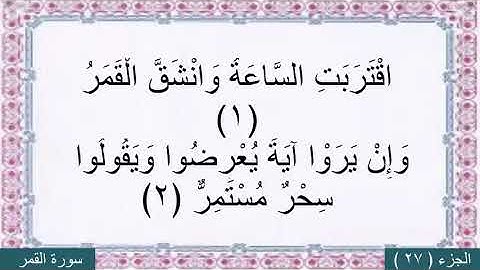 اقْتَرَبَتِ السَّاعَةُ وَانْشَقَّ الْقَمَرُ
(١)
وَإِنْ يَرَوْا آيَةً يُعْرِضُوا وَيَقُولُوا
سِحْرٌ مُسْتَمِرٌّ (٢)
الجزء ( ٢٧ )
سورة القمر